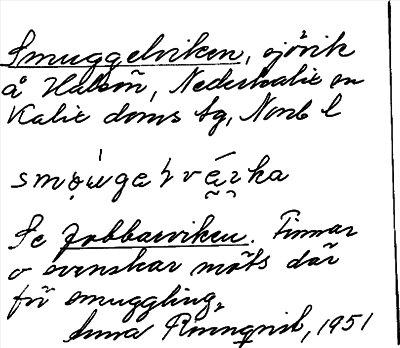 Smuggelviken, sjövik
å Halsön, Nederkalix sn
Kalix doms tg, Norrb l
Se Jobbarviken. Finnar
o svenskar möts där
för smuggling,
Anna Rönnqvist, 1951